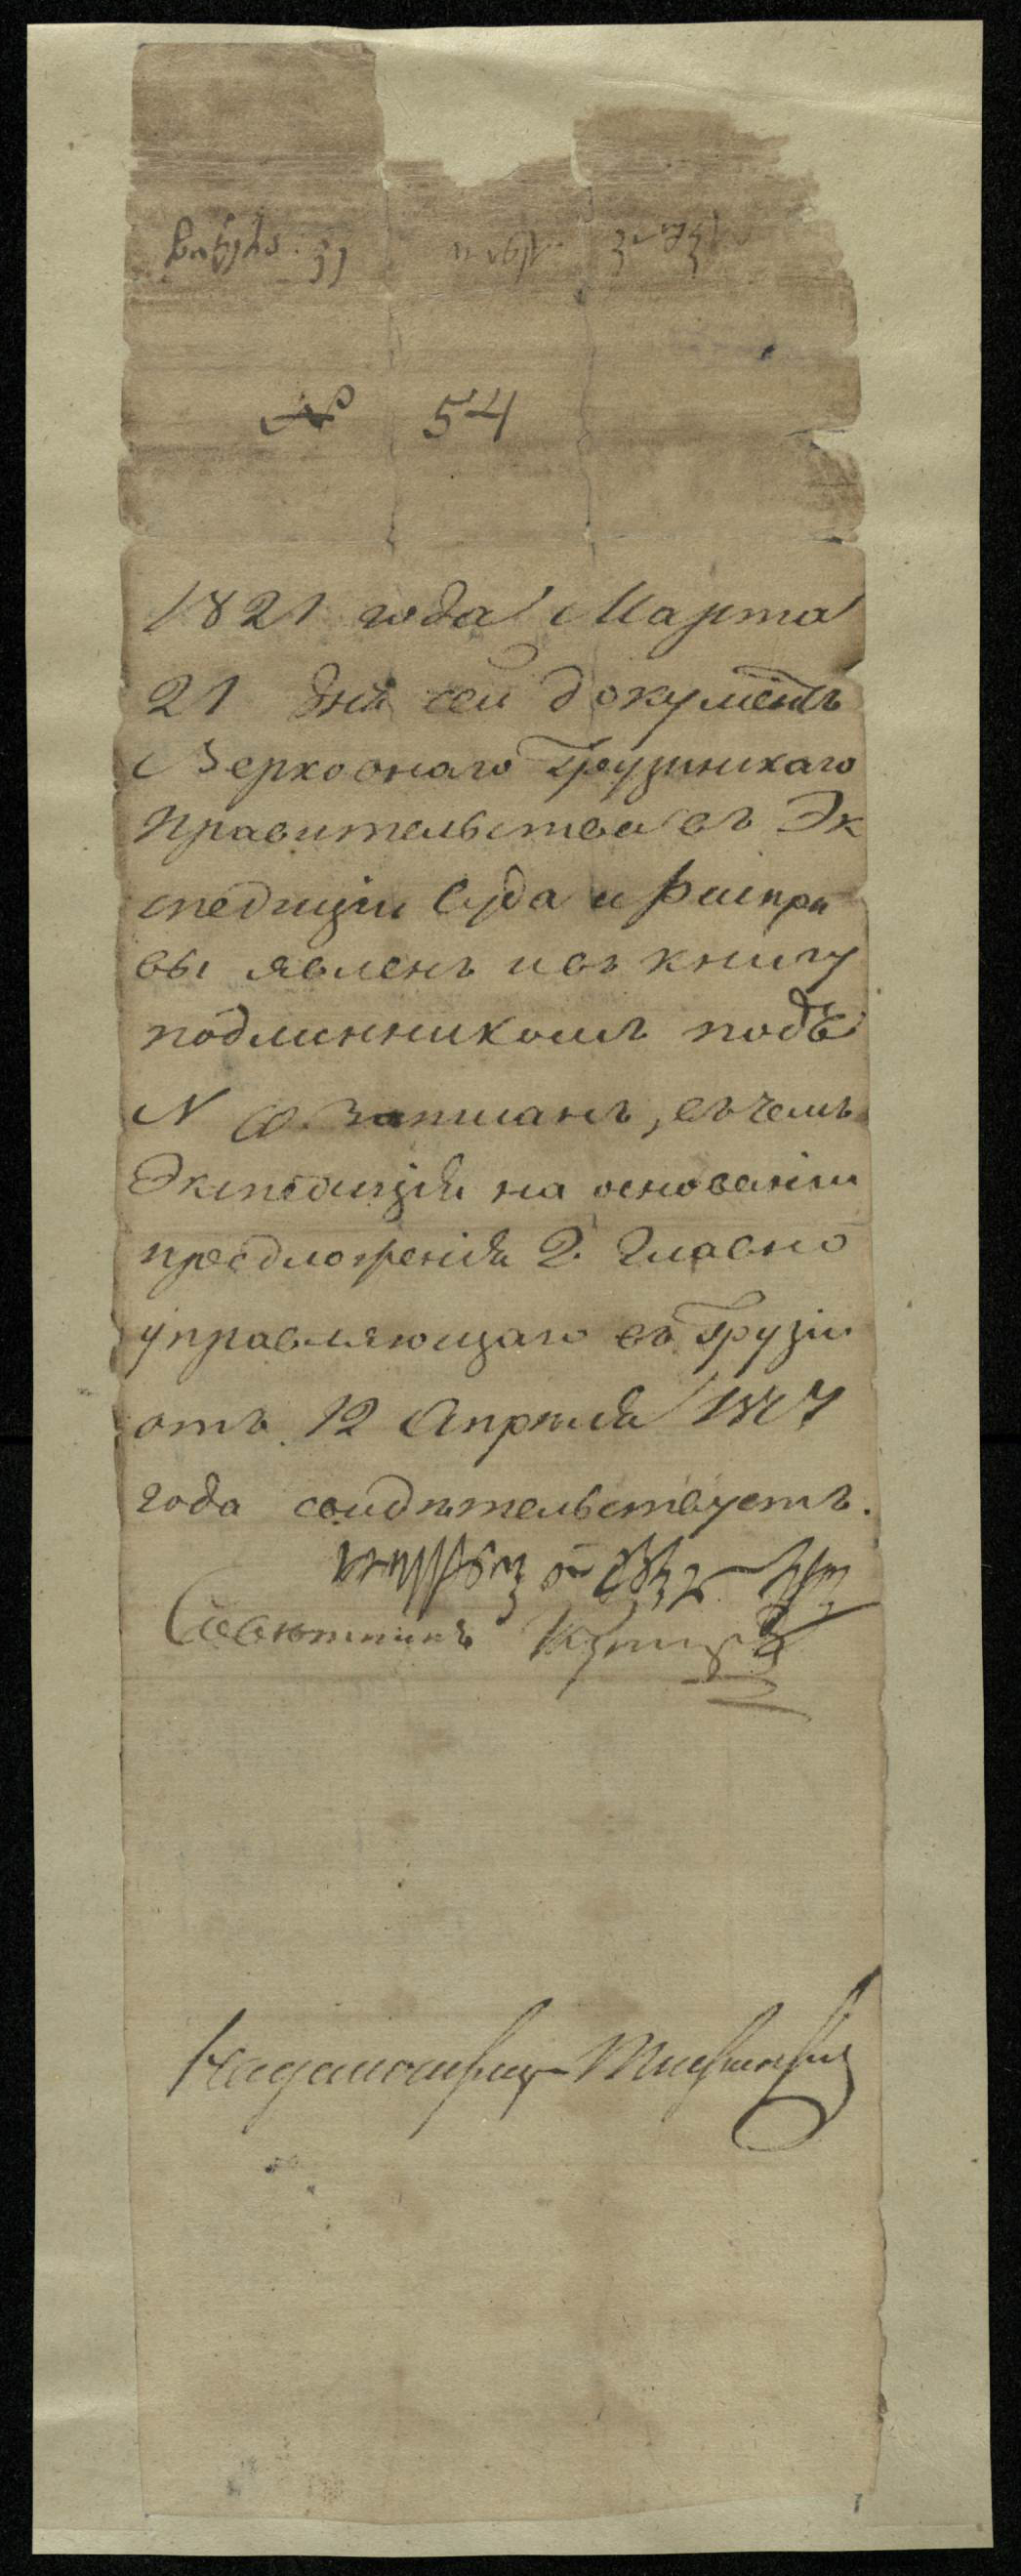 № 54
1821 года Марта
21 дня сей документъ
Верховнаго Грузинскаго
Правительства въ Эк
спедиціи Суда и Распра
вы явленъ и въ книгу
подлинникомъ подъ
N записанъ, въ чемъ
Экспедиція на основаніи
предложенія Г. Главно
управляющаго въ Грузіи
отъ 12 Апреля 1817
года свидѣтельствуетъ.
Совѣтникъ